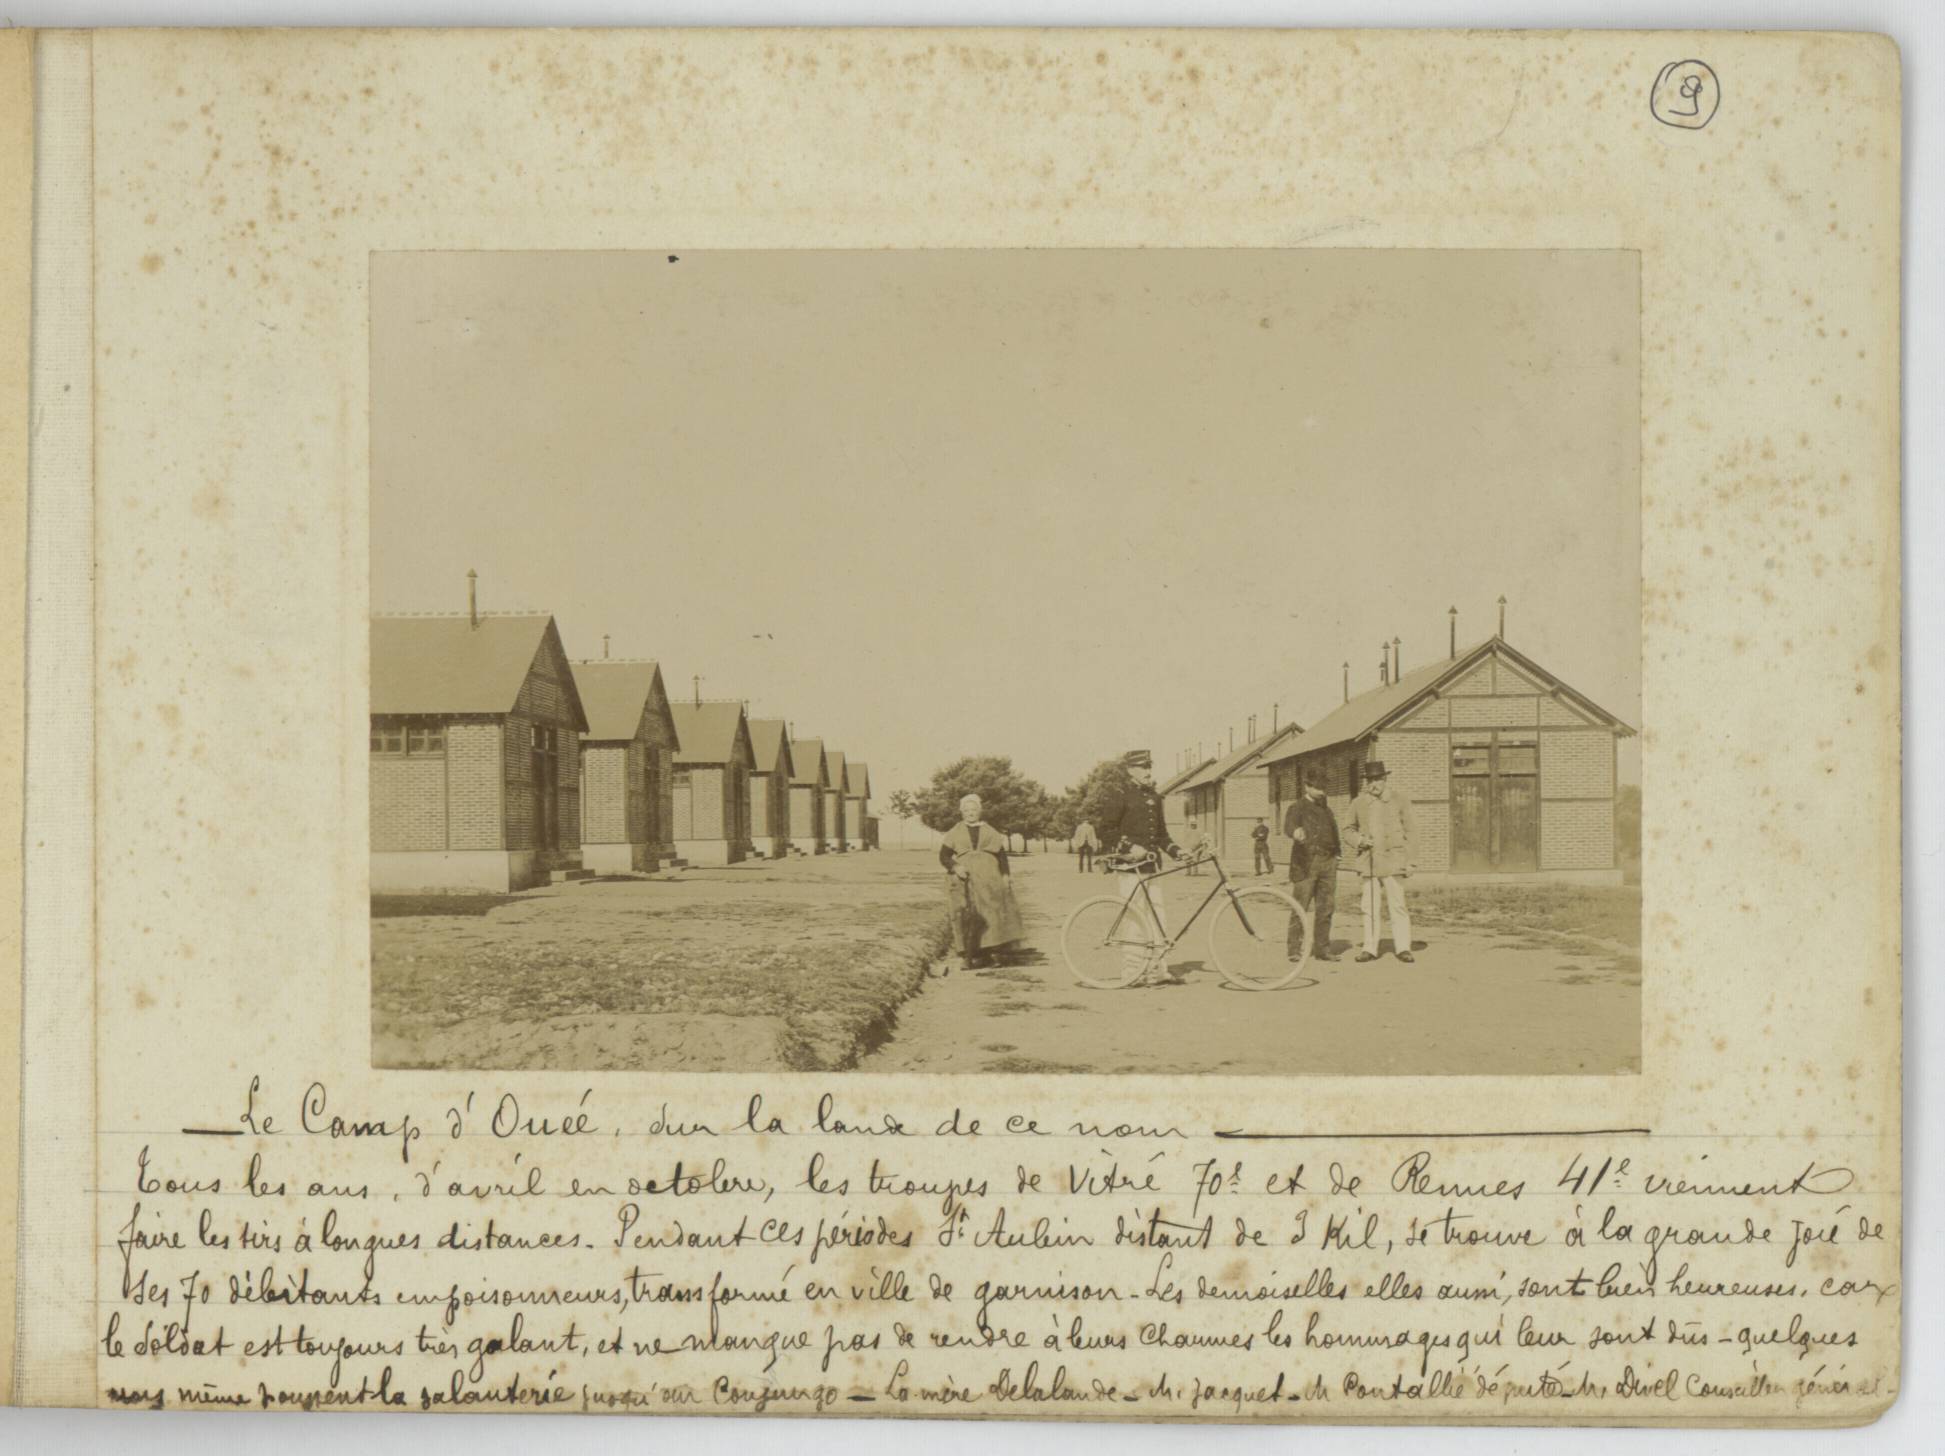 9
Le Camp d'Ouée, sur la lande de ce nom
Tous les ans, d'avril en octobre, les troupes de Vitré 70e et de Rennes 41e viennent
faire les tirs à longues distances. Pendant ces périodes St Aubin distant de 3 Kil, se trouve à la grande joie de
ses 70 débitants empoisonneurs, transformé en ville de garnison - Les demoiselles elles aussi, sont bien heureuses, car
le soldat est toujours très galant, et ne manque pas de rendre à leurs charmes les hommages qui leur sont dûs - quelques
uns même poussent la galanterie jusqu'au Conjungo - La mère Delalande - M. Jacquet - M Pontallié député - M. Divel Conseiller général -